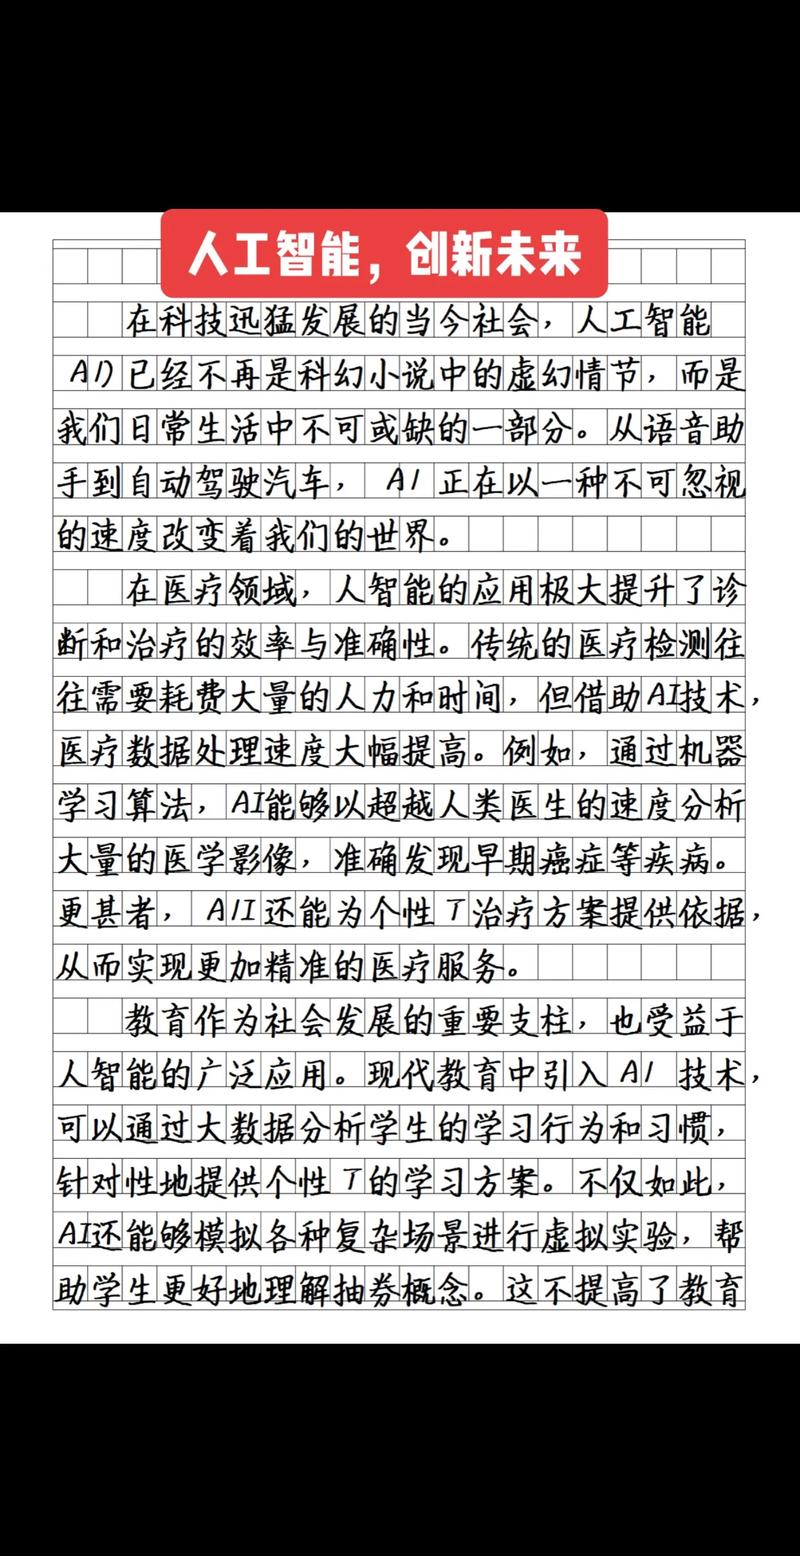 人工智能，创新未来
在科技迅猛发展的当今社会，人工智能
AI）已经不再是科幻小说中的虚幻情节，而是
我们日常生活中不可或缺的一部分。从语音助
手到自动驾驶汽车， AI 正在以一种不可忽视
的速度改变着我们的世界。
在医疗领域，人智能的应用极大提升了诊
断和治疗的效率与准确性。传统的医疗检测往
往需要耗费大量的人力和时间，但借助AI技术，
医疗数据处理速度大幅提高。例如，通过机器
学习算法，AI能够以超越人类医生的速度分析
大量的医学影像，准确发现早期癌症等疾病。
更甚者， AII还能为个性了治疗方案提供依据，
从而实现更加精准的医疗服务。
教育作为社会发展的重要支柱，也受益于
人智能的广泛应用。现代教育中引入 AI 技术，
可以通过大数据分析学生的学习行为和习惯，
针对性地提供个性了的学习方案。不仅如此，
AI还能够模拟各种复杂场景进行虚拟实验，帮
助学生更好地理解抽券概念。这不提高了教育